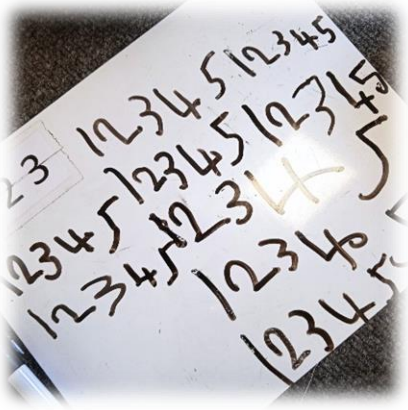 12345 12345
23
12345 12345
12345 1234 5
12345 1234
12345